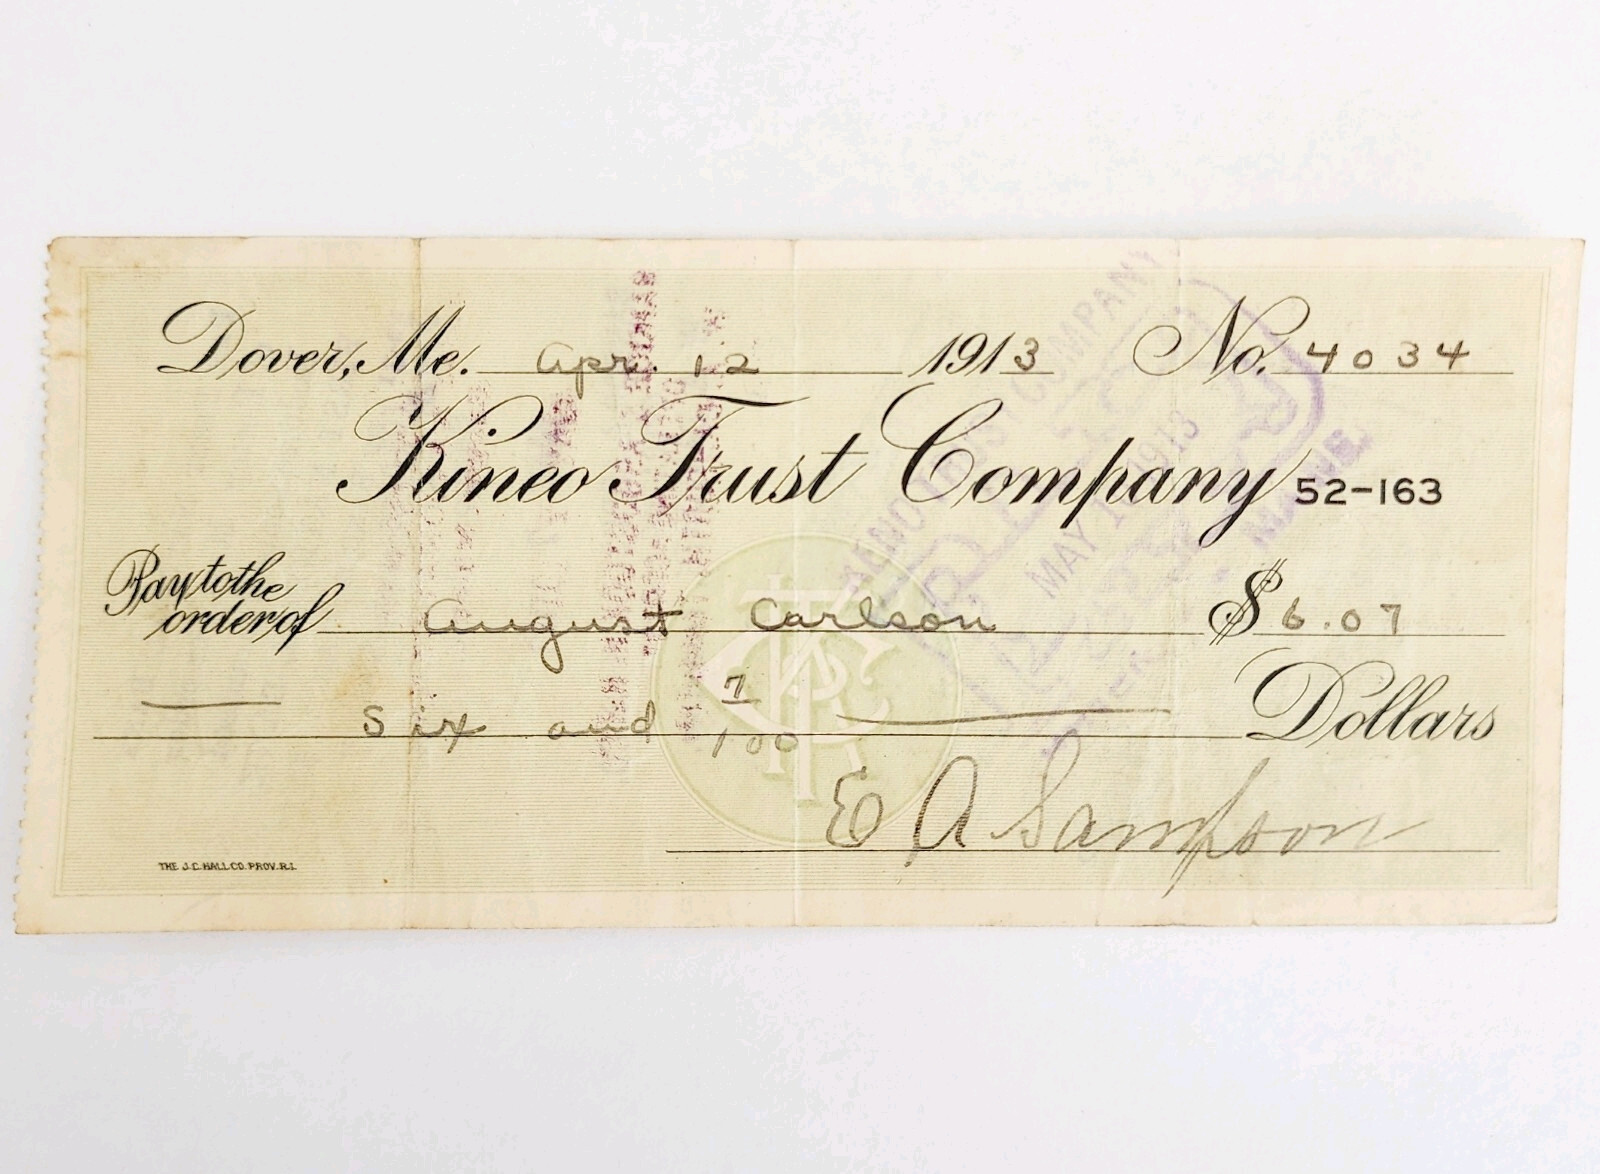 Dover, Me. Apr. 12 1913 No. 4034
Kineo Trust Company 52-163
Pay to the
order of August Carlson $ 6.07
Six and 7/100 Dollars
E A Sampson
THE J.C. HALL CO. PROV. R.I.
TRUST COMPANY
MAY 1913
MAINE.